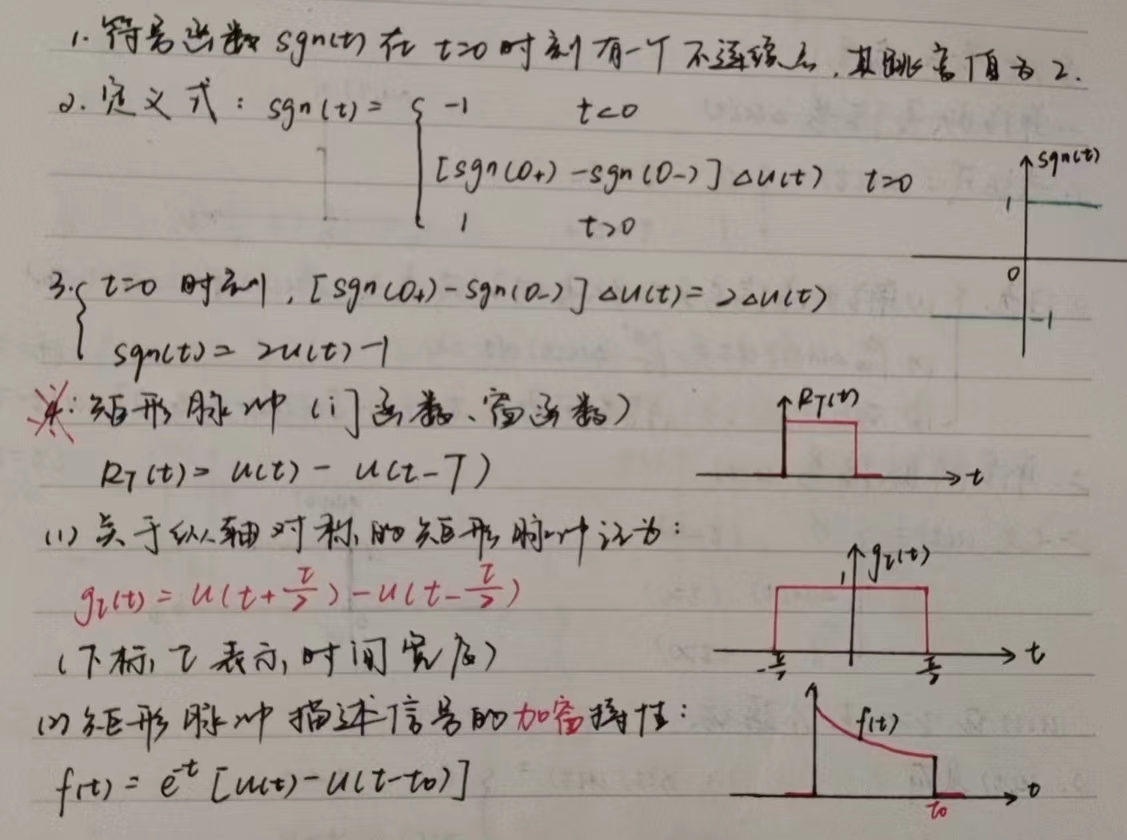 1. 符号函数 sgn(t) 在 t=0 时刻有一个不连续点,其跳变值为 2.
2. 定义式: sgn(t) = { -1 t<0
[sgn(0+) - sgn(0-)] Δu(t) t=0
1 t>0
sgn(t)
1
0
-1
3. { t=0 时刻, [sgn(0+) - sgn(0-)] Δu(t) = 2Δu(t)
sgn(t) = 2u(t) - 1
4. 矩形脉冲 (门函数、窗函数)
R_T(t) = u(t) - u(t-T)
R_T(t)
t
(1) 关于纵轴对称的矩形脉冲记为:
g_τ(t) = u(t+τ/2) - u(t-τ/2)
(下标 τ 表示时间宽度)
g_τ(t)
1
-τ/2 τ/2 t
(2) 矩形脉冲描述信号的加窗特性:
f(t) = e^-t [u(t) - u(t-t0)]
f(t)
t0